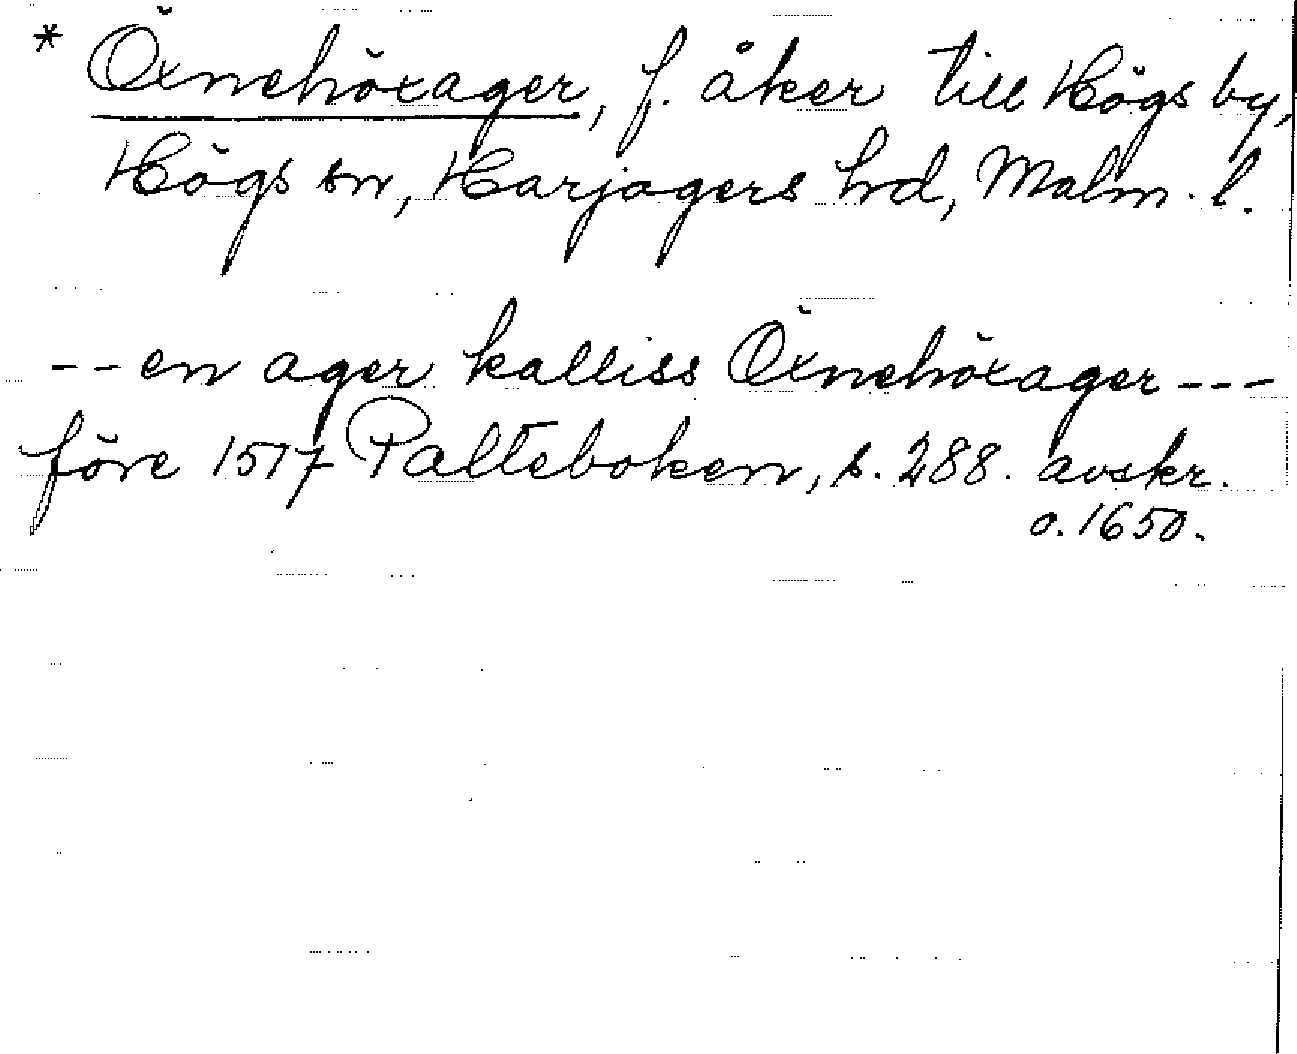 * Öxnehöxager, f. åker till Högs by,
Högs sn, Harjagers hd, Malm. l.
-- en ager kalliss Öxnehöxager ---
före 1517 Palteboken, s. 288. avskr.
o. 1650.